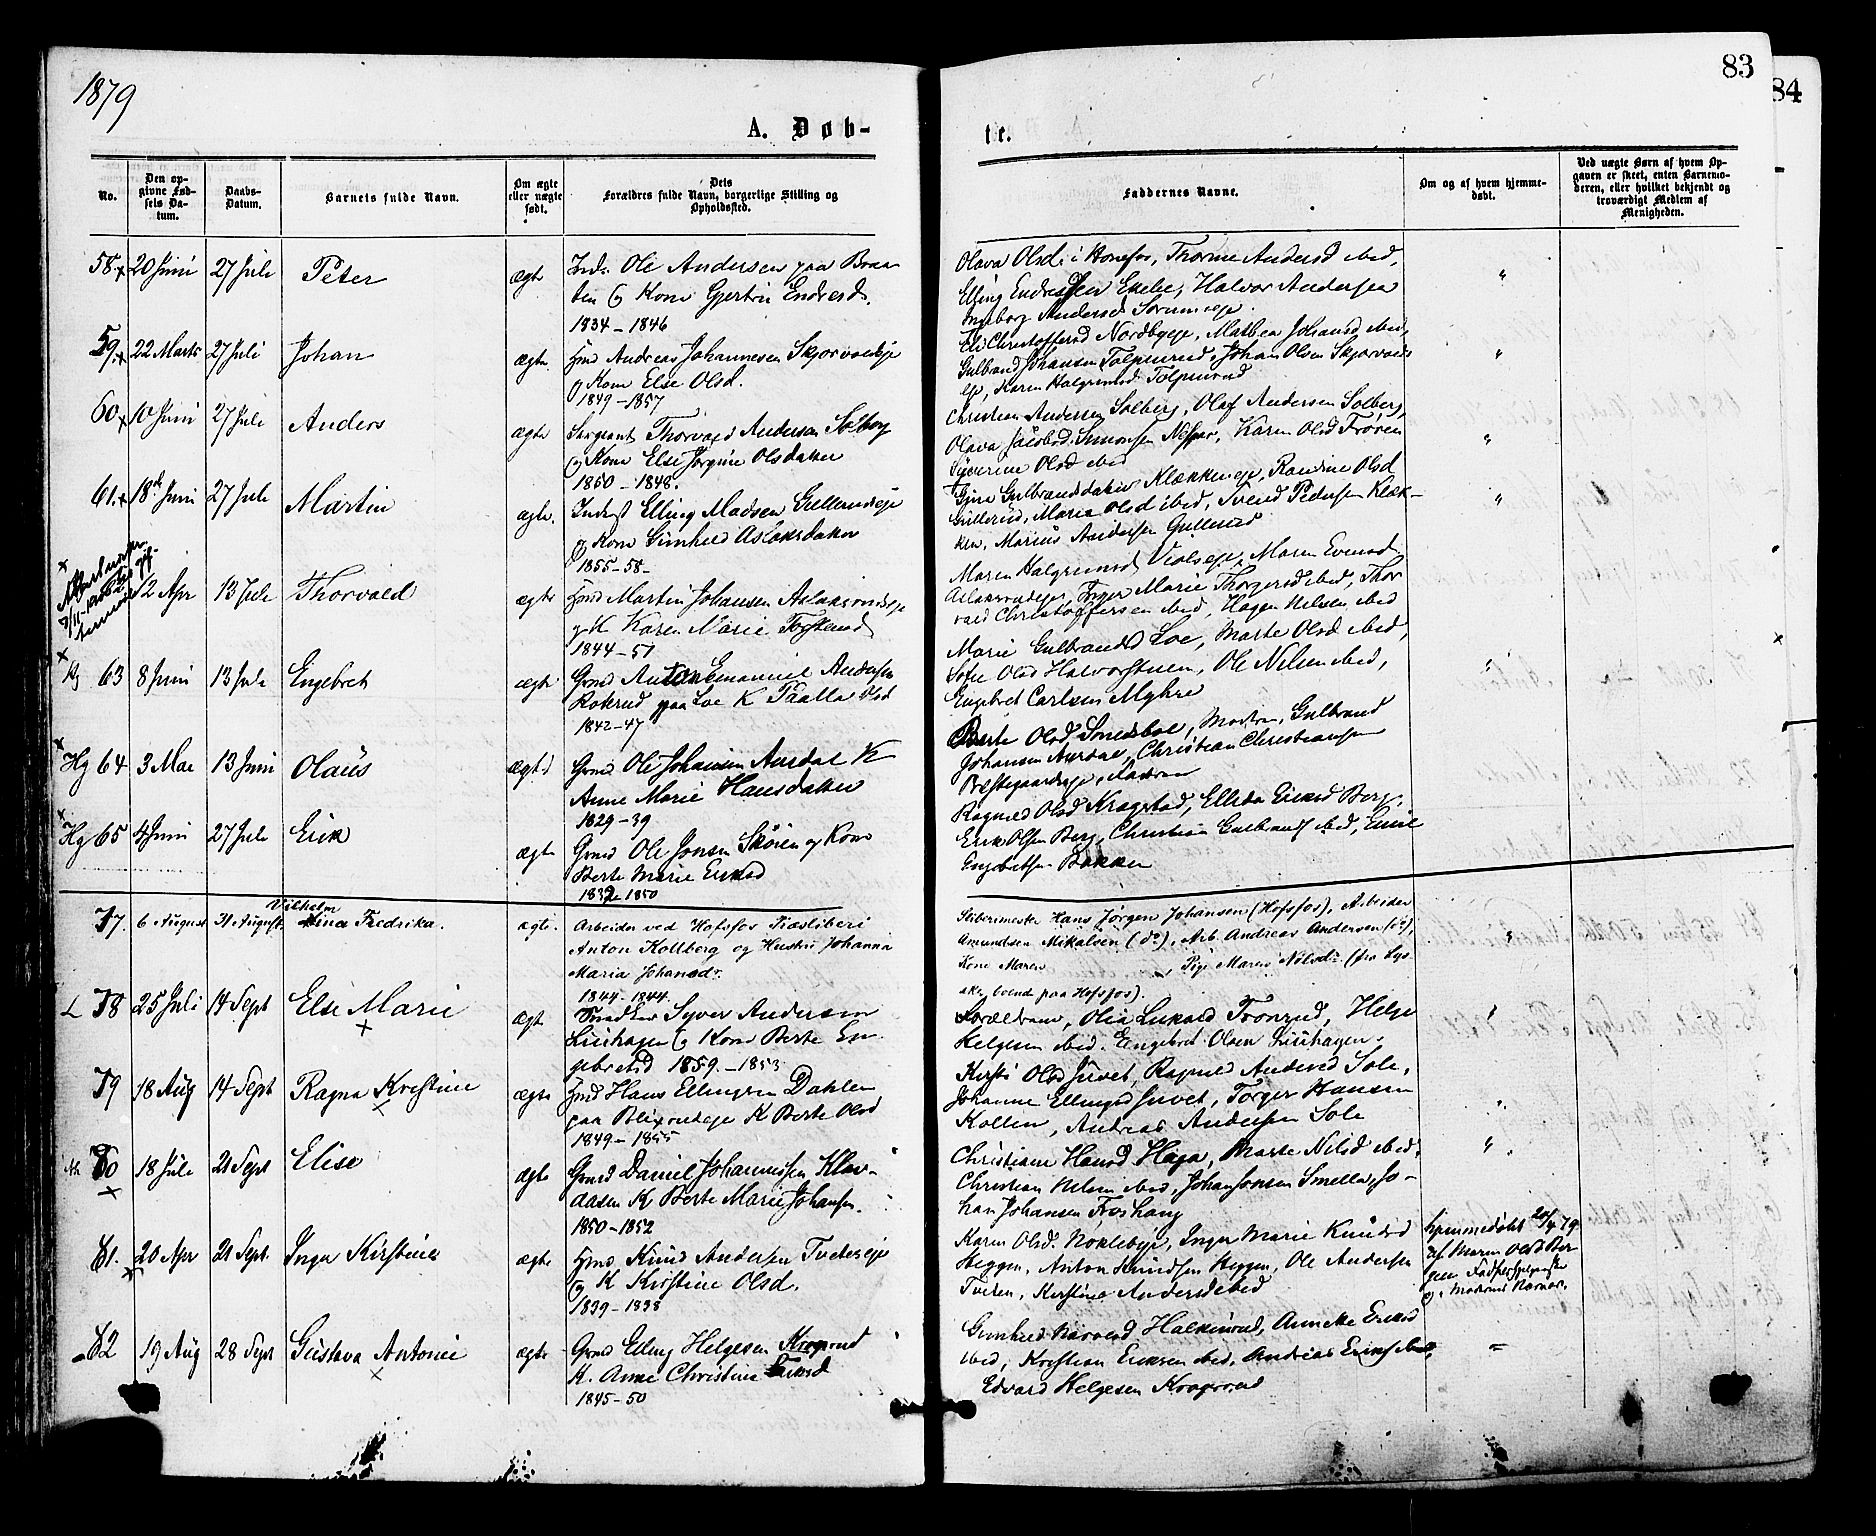 1879
83
84
A. Døb-
te.
No.
Den op-
givne Fød-
sels Da-
tum.
Daabs-
Datum.
Barnets fulde Navn.
Om ægte
eller uægte
født.
Dets
Forældres fulde Navn, borgerlige Stilling og
Opholdssted.
Faddernes Navne.
Om og af hvem hjemme-
døbt.
Ved uægte Børn af hvem Op-
gaven er skeet, enten Barnemo-
deren, eller hvilket bekjendt og
troværdigt Medlem af
Menigheden.
58. 20 Juni 27 Juli Peter ægte Inds. Ole Andersen paa Braa-
ten og Kone Gjertru Endresd.
1834 - 1846
Olava Olsd. i Hønefos, Thorine Andersd ibid,
Elling Endresen Ekebe, Halvor Andersen
Ingeborg Andersd
59. 22 Marts 27 Juli Johan ægte. Hmd Andreas Johannesen Skjorvoldeje
og Kone Else Olsd.
1849 - 1857
Eli Christoffersd Nordbyeje, Mathea Johansd ibid,
Gulbrand Johansen Tolpinrud, Johan Olsen Skjorvolds
eje, Karen Halgrimsd Tolpinrud
60. 10 Juni 27 Juli Anders ægte Sergeant Thorvald Andersen Solberg
og Kone Else Jørgine Olsdatter
1850 - 1848.
Christian Andersen Solberg, Olaf Andersen Solberg,
Olava Jacobsd. Simonsen Karen Olsd Frøren
Olsd ibid
61. 18de Juni 27 Juli Martin ægte. Inderst Elling Madsen Gullerudseje
og Kone Gunhild Aslaksdatter
1855 - 58 -
Gulbrandsdatter Klækkeneje, Randine Olsd
Gullerud, Maria Olsd ibid, Svend Pedersen Klæk-
ken, Marius Andersen Gullerud
12 Apr 13 Juli Thorvald ægte Hmd Martin Johansen Aslaksrudeje
og K Karen Marie
1844 - 51
Maren Halgrimsd Maren Evensd
Aslaksrudeje, Marie Thorgersd ibid, Thor
vald Christoffersen ibid, Hagen Nelsen ibid
63 8 Juni 13 Juli Engebret ægte Grmd Anton Emanuel Andersen
Rokrud paa Loe K Olsd
1842 - 47
Marie Gulbrandsd Loe, Marte Olsd ibid,
Sofie Olsd Halvorstuen, Ole Nilsen ibid,
Engebret Carlsen Myhre
Hg 64 3 Mai 13 Juni Olaus ægte Grmd Ole Johansen Aurdal K
Anne Marie Hansdatter
1829 - 39
Berte Olsd Smedsbøl, Gulbrand
Johansen Aurdal, Christian Christiansen
Prestegaardseje, Faderen
Hg 65 4 Juni 27 Juli Erik ægte Grmd Ole Jonsen Skøien og Kone
Berte Marie Eriksd
1832 - 1850
Ragnild Olsd Kragstad, Ellida Eriksd Berg,
Erik Olsen Berg, Christian Gulbrands ibid, Emil
Engebretsen Bakken
77. 6 August 31 August. Vilhelmina Fredrika. ægte. Arbeider ved Hofsfos Træsliberi
Anton Kollberg og Hustru Johanna
Maria Johansdr.
1844 - 1844.
Slibermester Hans Jørgen Johansen (Hofsfos), Arbeider
Amundsen Mikalsen (do), Arb. Andreas Andersen (do),
Kone Maren , Pige Maren Nilsdr. (fra Lys-
aker, boend paa Hofsfos).
L 78 25 Juli 14 Sept Else Marie ægte Syver Andersen
Liuhagen og Kone Berte En-
gebretsd 1859. - 1853
Forældrene, Olia Lukasd Tronrud, Helge
Helgesen ibid. Engebret Olsen Liuhagen.
79 18 Aug 14 Sept Ragna Kristine ægte Hmd Hans Ellingsen Dahlen
paa Blixrudeje K Berte Olsd
1849 - 1855
Kirsti Olsd Juvet, Ragnild Andersd Sole,
Johanne Ellingsd Juvet, Torger Hansen
Kollen, Andreas Andersen Sole
80 18 Juli 21 Sept Elise ægte Grmd Daniel Johannessen Klav-
aasen K Berte Marie Johansen.
1850 - 1852
Christiane Hansd Haga, Marte Nilsd ibid,
Christian Nilsen ibid, Johan Jonsen Smella, Jo-
han Johansen Froshaug
81. 20 Apr 21 Sept. Inga Kirstine ægte Hmd. Knud Andersen Tveteneje
og K Kirstine Olsd.
1839 - 1838
Karen Olsd. Nøklebye, Inger Marie Knudsd
Heggen, Anton Knudsen Heggen, Ole Andersen
Tveten, Kirstine Andersd ibid
hjemmedøbt 20/4 79
af Maren Olsd Ber-
gen
82 19 Aug 28 Sept Gustava Antonie ægte Grmd Elling Helgesen Kragrud
K. Anne Christine Eriksd
1845 - 50
Gunhild Halkinrud, Anneke Eriksd
ibid, Kristian Eriksen ibid, Andreas Eriks ibid,
Edvard Helgesen Kragerud